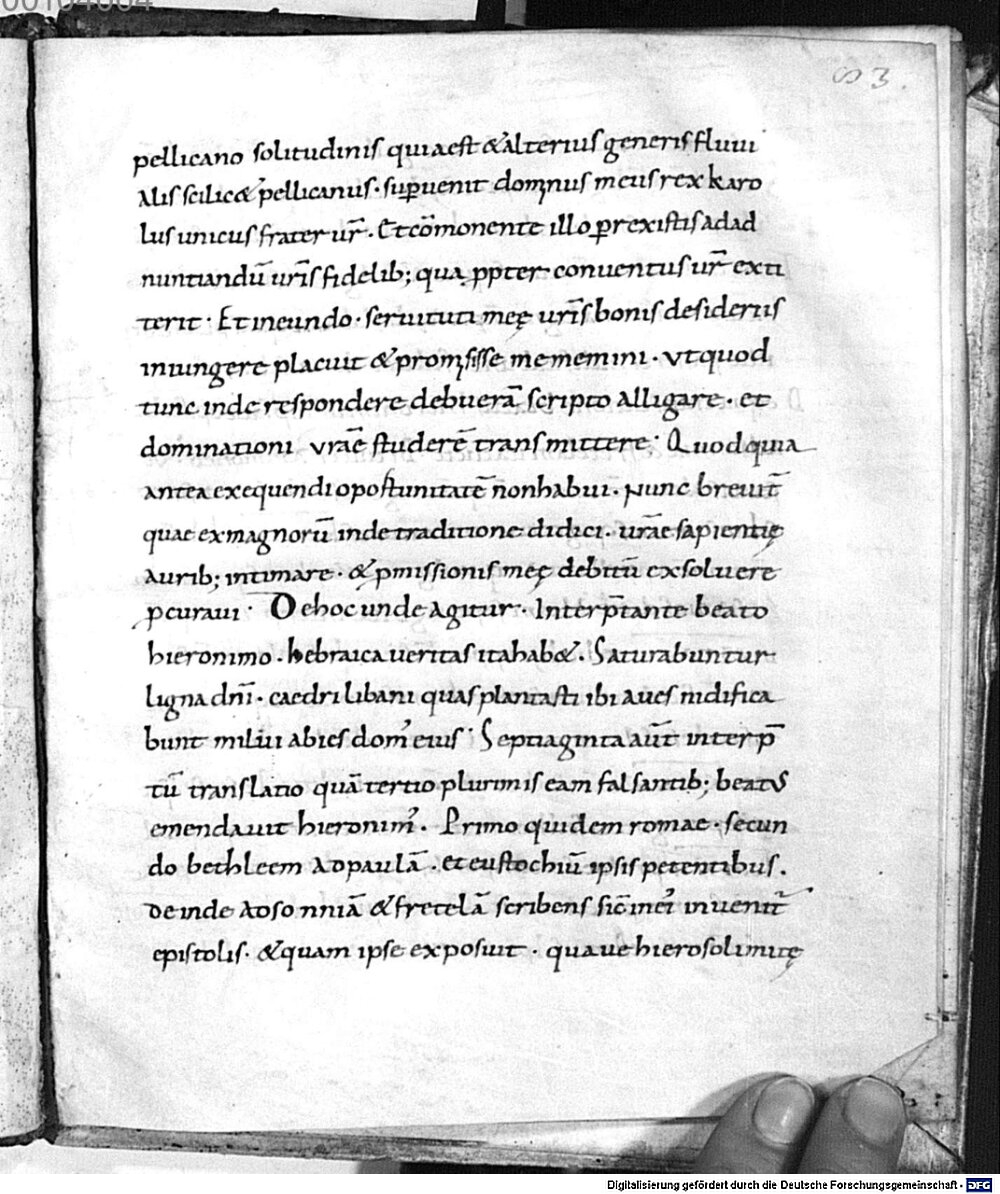 00104004
53.
pellicano solitudinis quia est & alterius generis fluui
alis scilic& pellicanus · supuenit domnus meus rex karo
lus unicus frater ur̄ · Et cōmonente illo prexistis ad ad
nuntiandū urīs fidelib; qua ppter conuentus ur̄ exti
terit · Et ineundo · seruituti meę urīs bonis desideriis
iniungere placuit & promisisse me memini · vt quod
tunc inde respondere debuerā scripto alligare · et
dominationi vrāe studerē transmittere · Quod quia
antea exequendi oportunitatē non habui · Nunc breuit̄
quae ex magnorū inde traditione didici · urāe sapientię
aurib; intimare · & pmissionis meę debitū exsoluere
pcuraui · De hoc unde agitur · Interp̄tante beato
hieronimo · hebraica ueritas ita hab& · Saturabuntur
ligna dn̄i · caedri libani quas plantasti ibi aues nidifica
bunt miluii abies dom' eius · Septuaginta aūt interp̄
tū translatio quā tertio plurimis eam falsantib; beatus
emendauit hieronim' · Primo quidem romae · secun
do bethleem ad paulā · et eustochiū ipsis petentibus ·
deinde ad sonniā & fretelā scribens sic̄ in ei' inuenit̄
epistolis · & quam ipse exposuit · quaue hierosolimitę
Digitalisierung gefördert durch die Deutsche Forschungsgemeinschaft · DFG